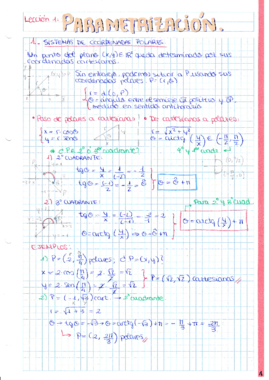 Lección 1:
PARAMETRIZACIÓN.
1. SISTEMAS DE COORDENADAS POLARES
Un punto del plano (x,y) ∈ R² queda determinado por sus
coordenadas cartesianas.
Sin embargo, podemos situar a P usando sus
coordenadas polares, P=(r,θ)
r = d(O,P)
θ = ángulo entre el semieje OX positivo y OP,
medido en sentido antihorario
• Paso de polares a cartesianas
• De cartesianas a polares:
x = r cosθ
r = √x²+y²
y = r senθ
θ = arctg (y/x) ∈ (-π/2, π/2)
1º y 4º cuad.
¿P ∈ 2º ó 3º cuadrante?
1) 3º CUADRANTE:
2) 2º CUADRANTE:
Para 2º y 3º cuad.
θ = arctg (y/x) + π
EJEMPLOS:
1) P=(2, π/4) polares; ¿P=(x,y)?
x = 2 cos (π/4) = 2 √2/2 = √2
y = 2 sen (π/4) = 2 √2/2 = √2
P=(√2, √2) cartesianas
2) P=(-1, √3) cart → 2º cuadrante
r = √1+3 = 2
θ → tgθ = -√3 → θ = arctg(-√3)+π = -π/3 + π = 2π/3
P=(2, 2π/3) polares